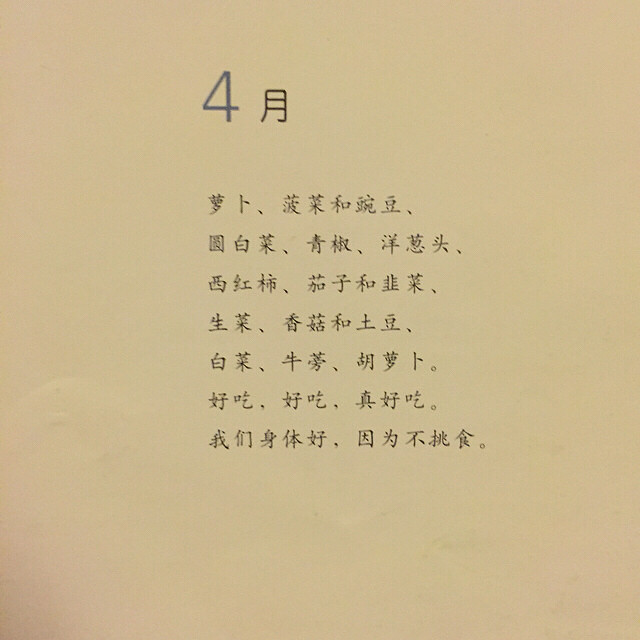 4月
萝卜、菠菜和豌豆、
圆白菜、青椒、洋葱头、
西红柿、茄子和韭菜、
生菜、香菇和土豆、
白菜、牛蒡、胡萝卜。
好吃，好吃，真好吃。
我们身体好，因为不挑食。